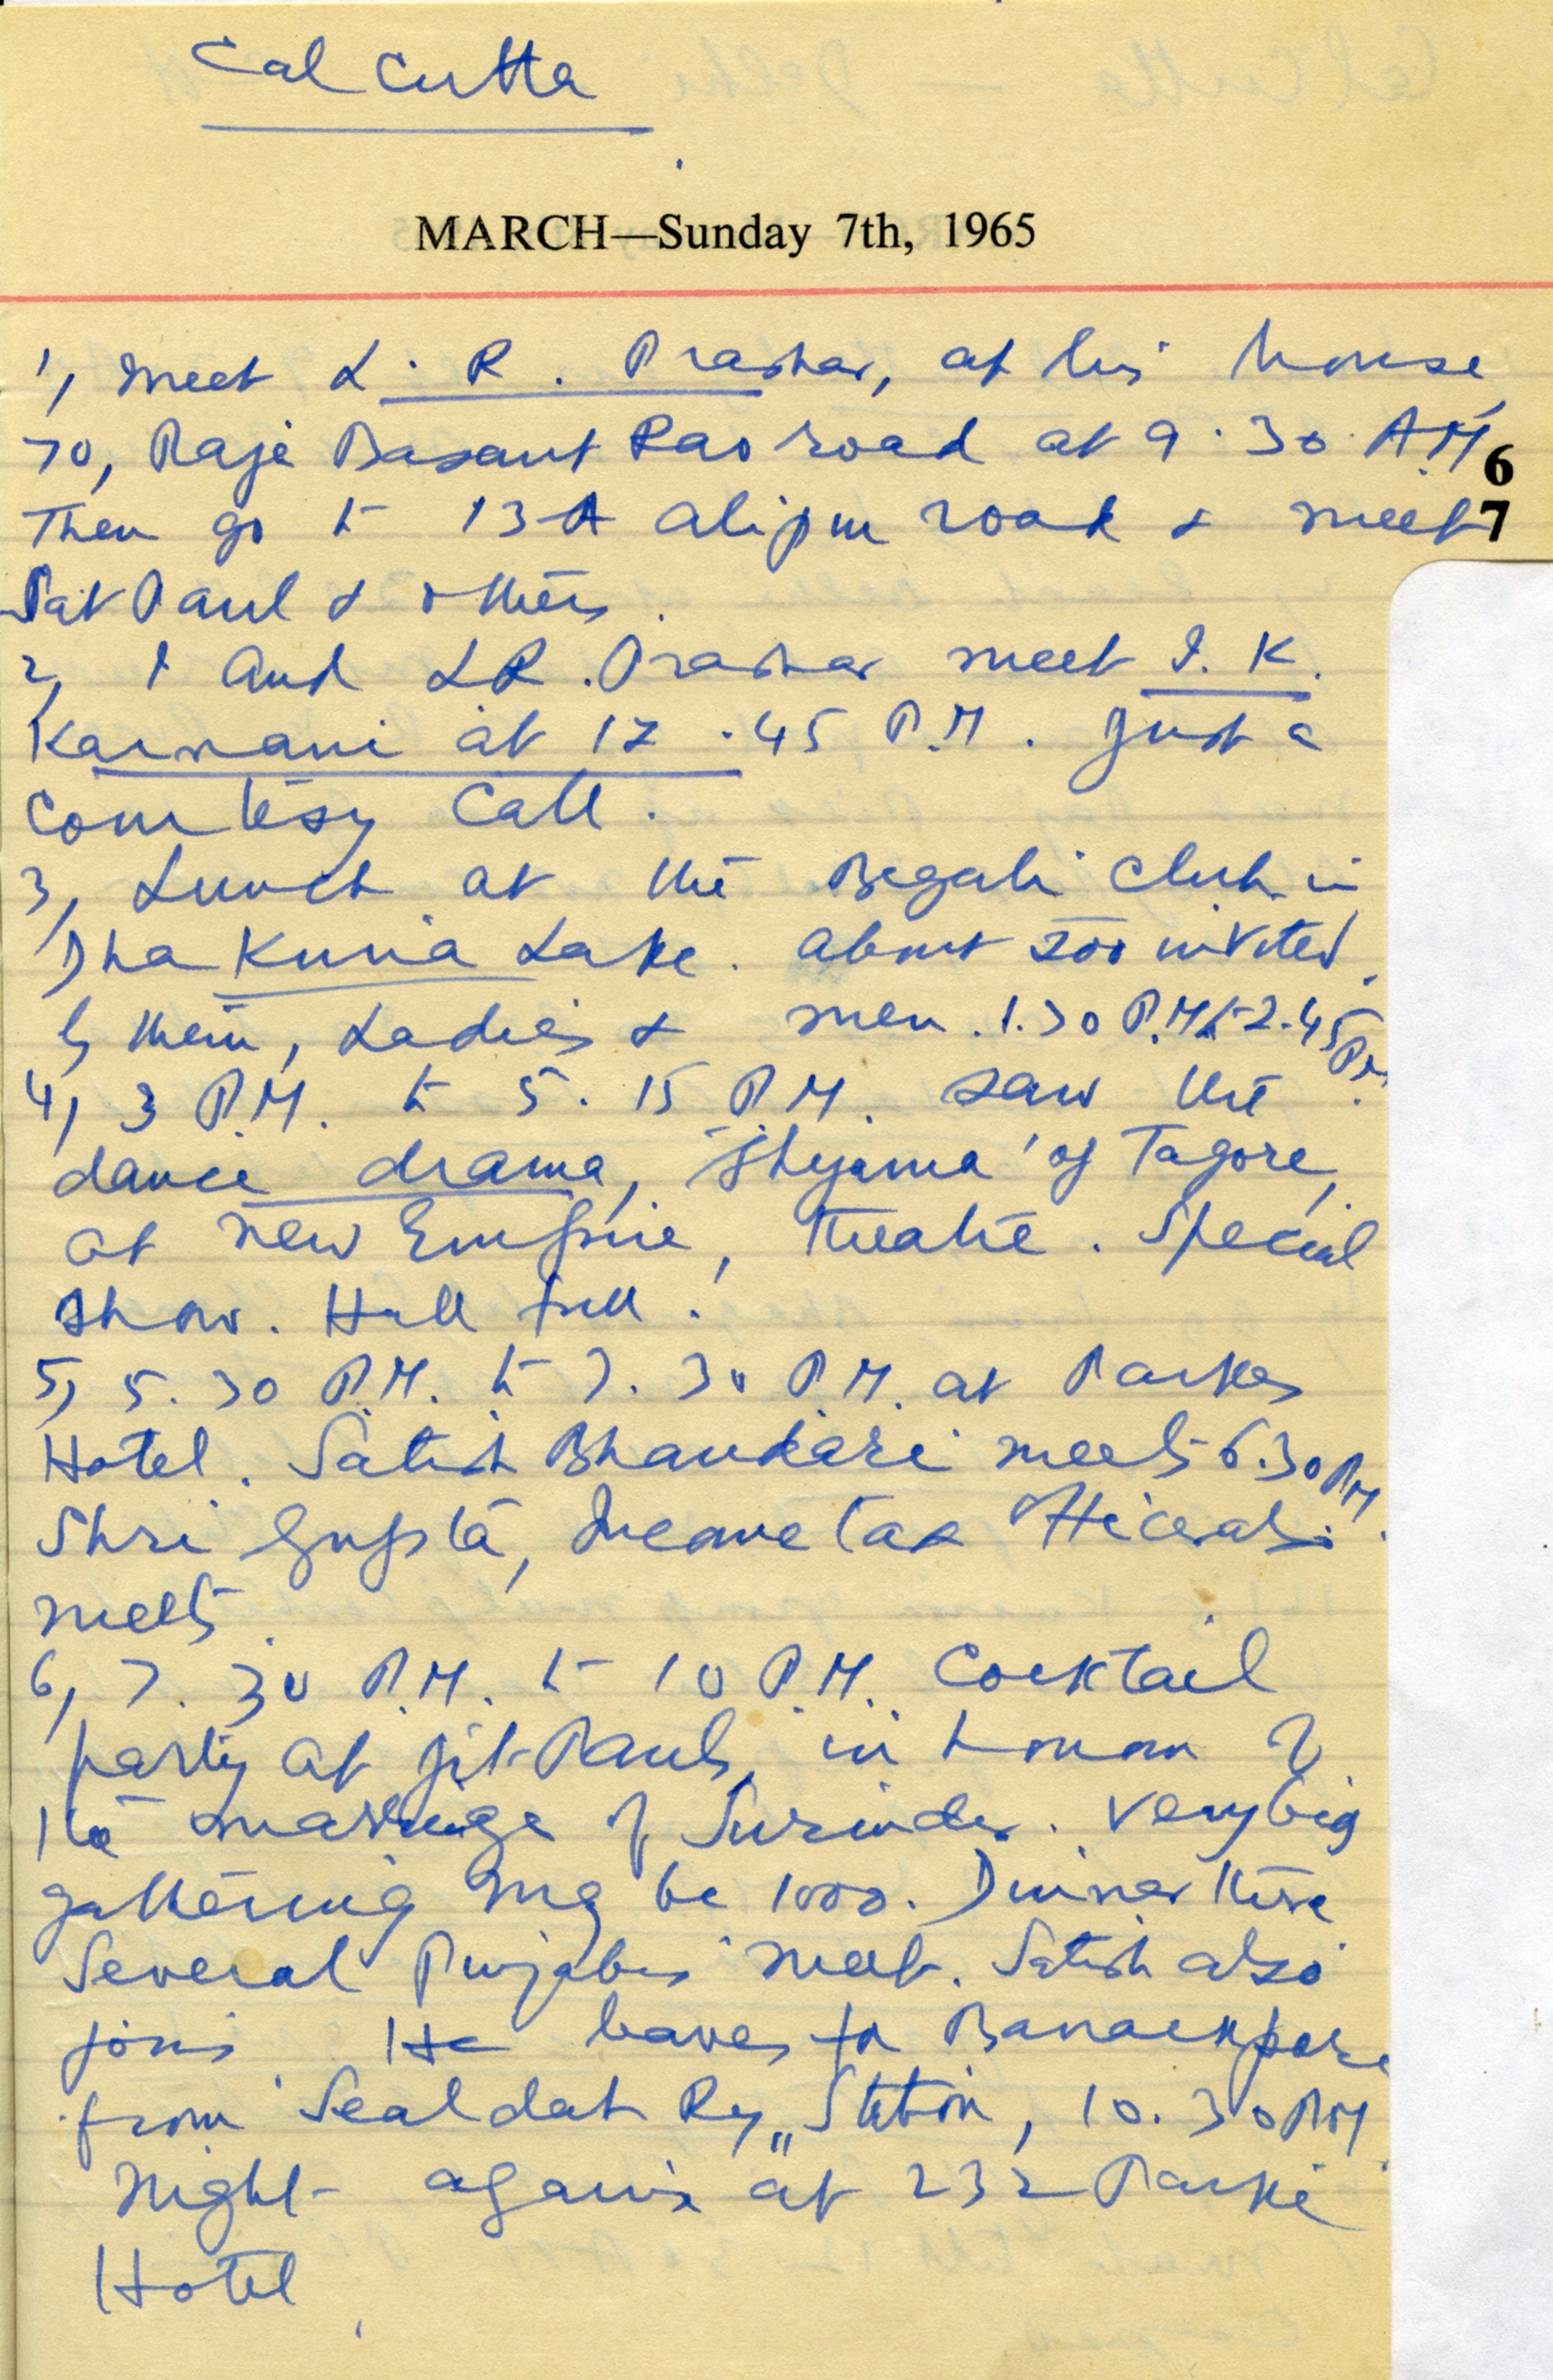 Calcutta
MARCH—Sunday 7th, 1965
1, Meet L. R. Prashar, at his house,
70, Raja Basant Rao road at 9.30 A.M.
6
Then go to 13A alipur road & meet
7
Sat Paul & others.
2, I and L R. Prashar meet I. K.
Karnani at 12.45 P.M. Just a
Courtesy Call.
3, Lunch at the Begali Club in
Dhakuria Lake. about 200 invited
by them, Ladies & men. 1.30 P.M. to 2.45 P.M.
4, 3 P.M. to 5.15 P.M. saw the
dance drama, 'Shyama' of Tagore,
at New Empire, theatre. Special
show. Hall full.
5, 5.30 P.M. to 7.30 P.M. at Parke
Hotel. Satish Bhandari meets 6.30 P.M.
Shri Gupta, Income tax also
meets.
6, 7.30 P.M. to 10 P.M. Cocktail
party at Jit Pauls, in honour of
the marriage of Surinder. Very big
gathering may be 1000. Dinner there
Several Punjabis meet. Satish also
joins. He leaves for Barrackpore
from Sealdah Ry,, Station, 10.30 P.M.
Night again at 232 Parke
Hotel.